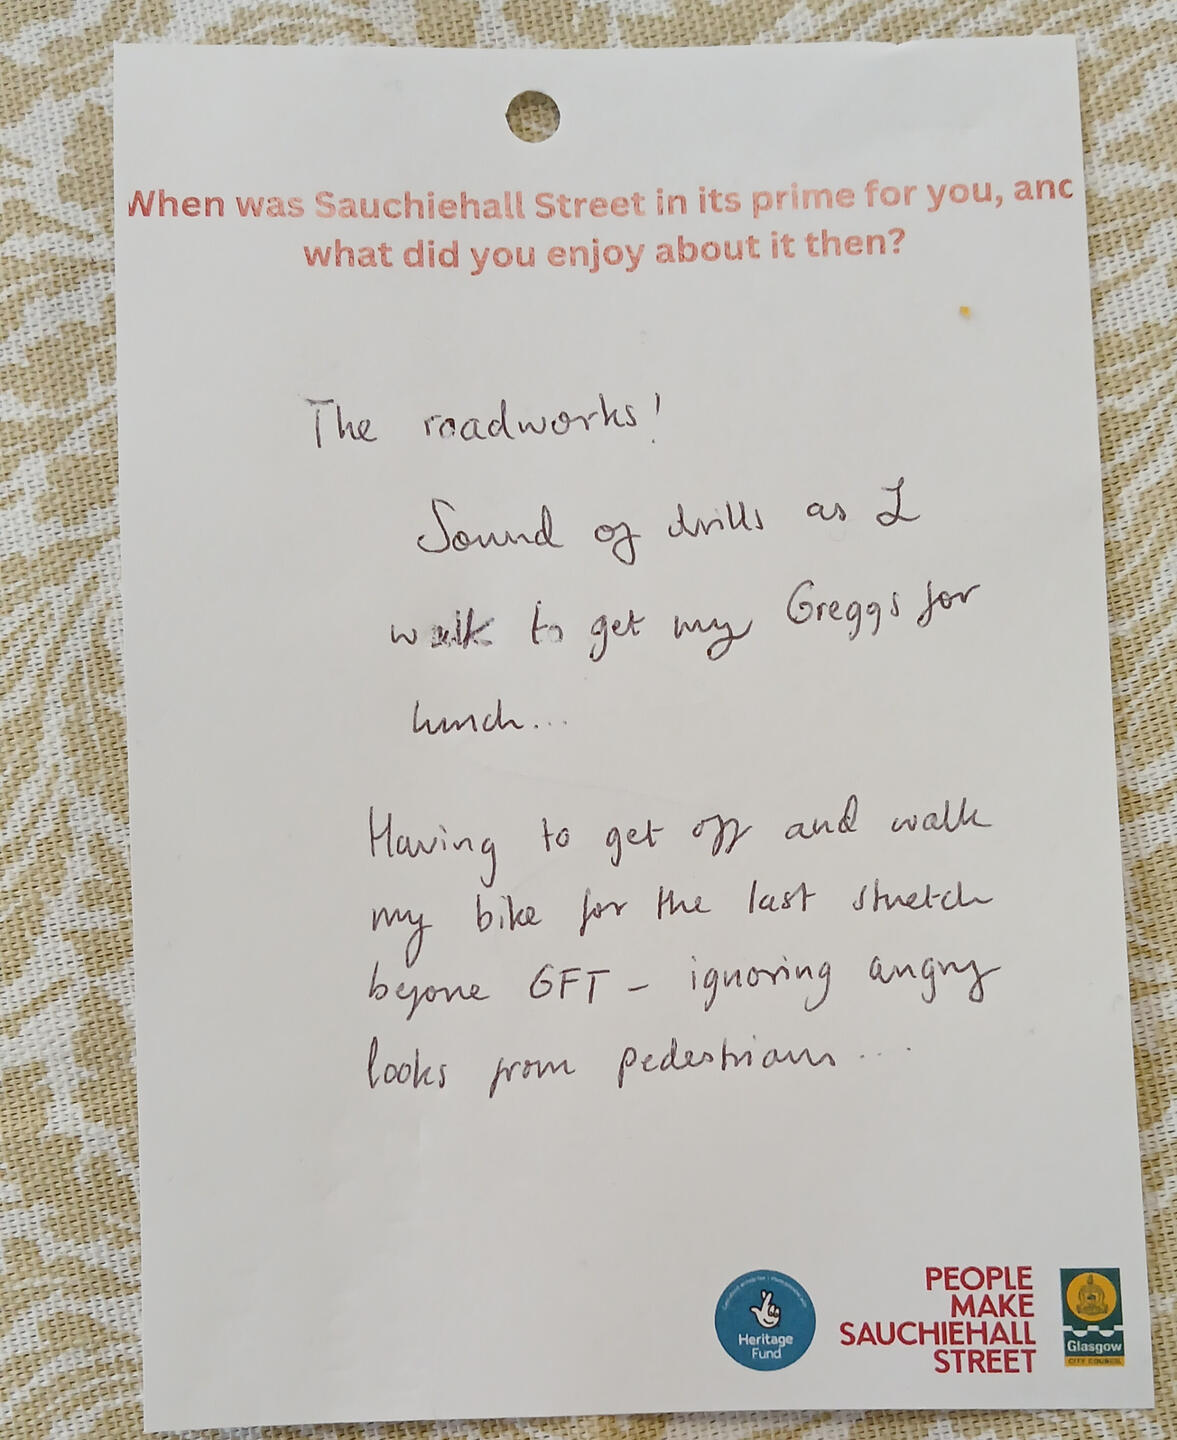 When was Sauchiehall Street in its prime for you, and
what did you enjoy about it then?
The roadworks!
Sound of drills as I
walk to get my Greggs for
lunch...
Having to get off and walk
my bike for the last stretch
beyone GFT - ignoring angry
looks from pedestrians...
Heritage
Fund
PEOPLE
MAKE
SAUCHIEHALL
STREET
Glasgow
CITY COUNCIL